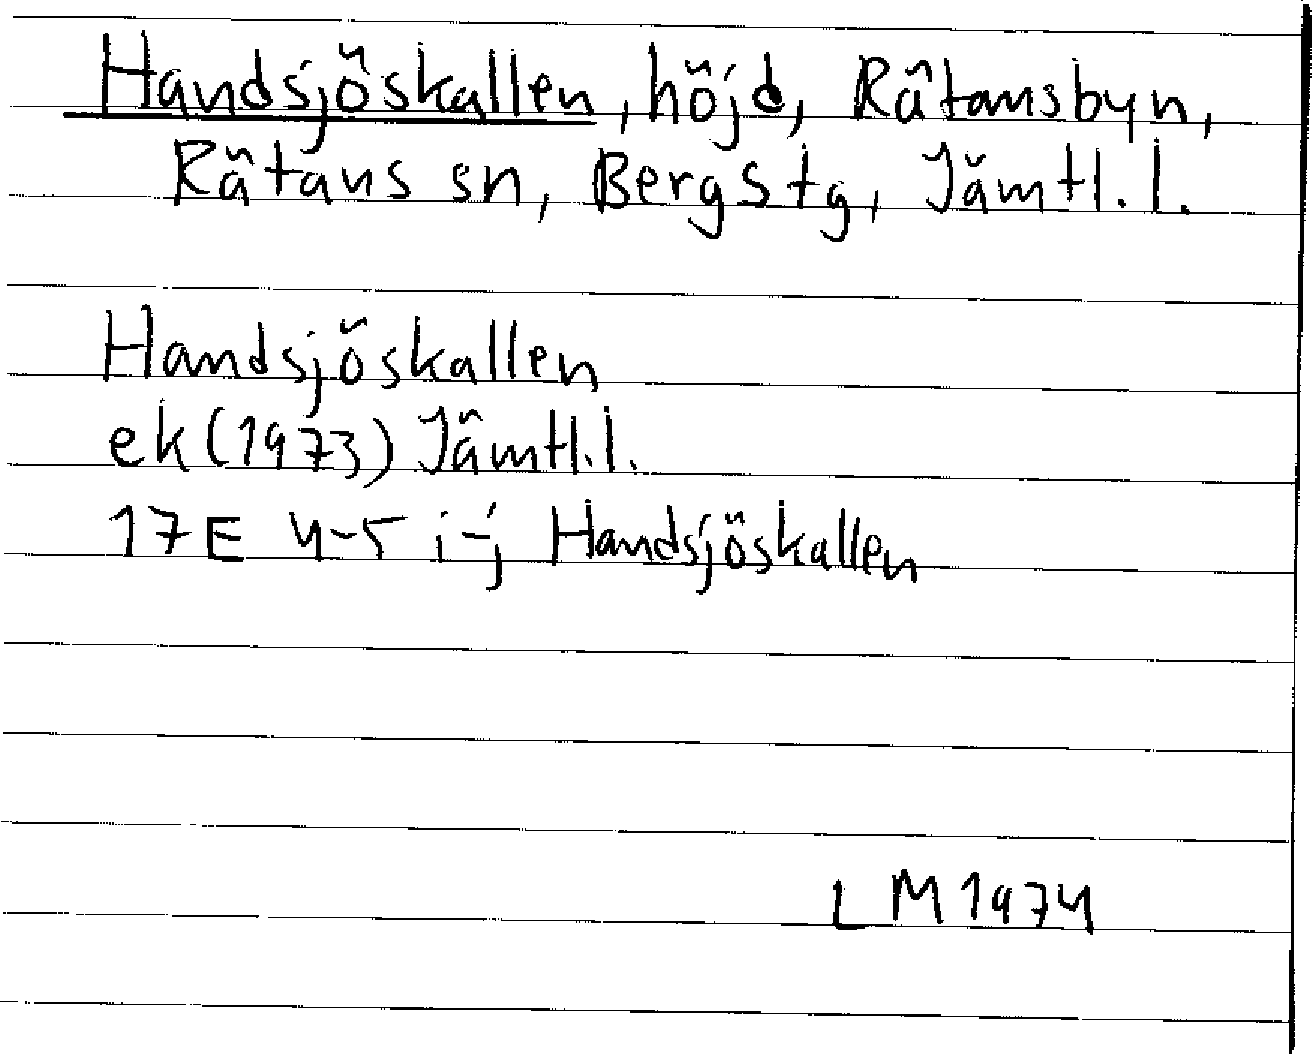 Handsjöskallen, höjd, Rätansbyn,
Rätans sn, Bergs tg, Jämtl. l.
Handsjöskallen
ek (1973) Jämtl. l.
17E 4-5 i-j Handsjöskallen
LM 1974